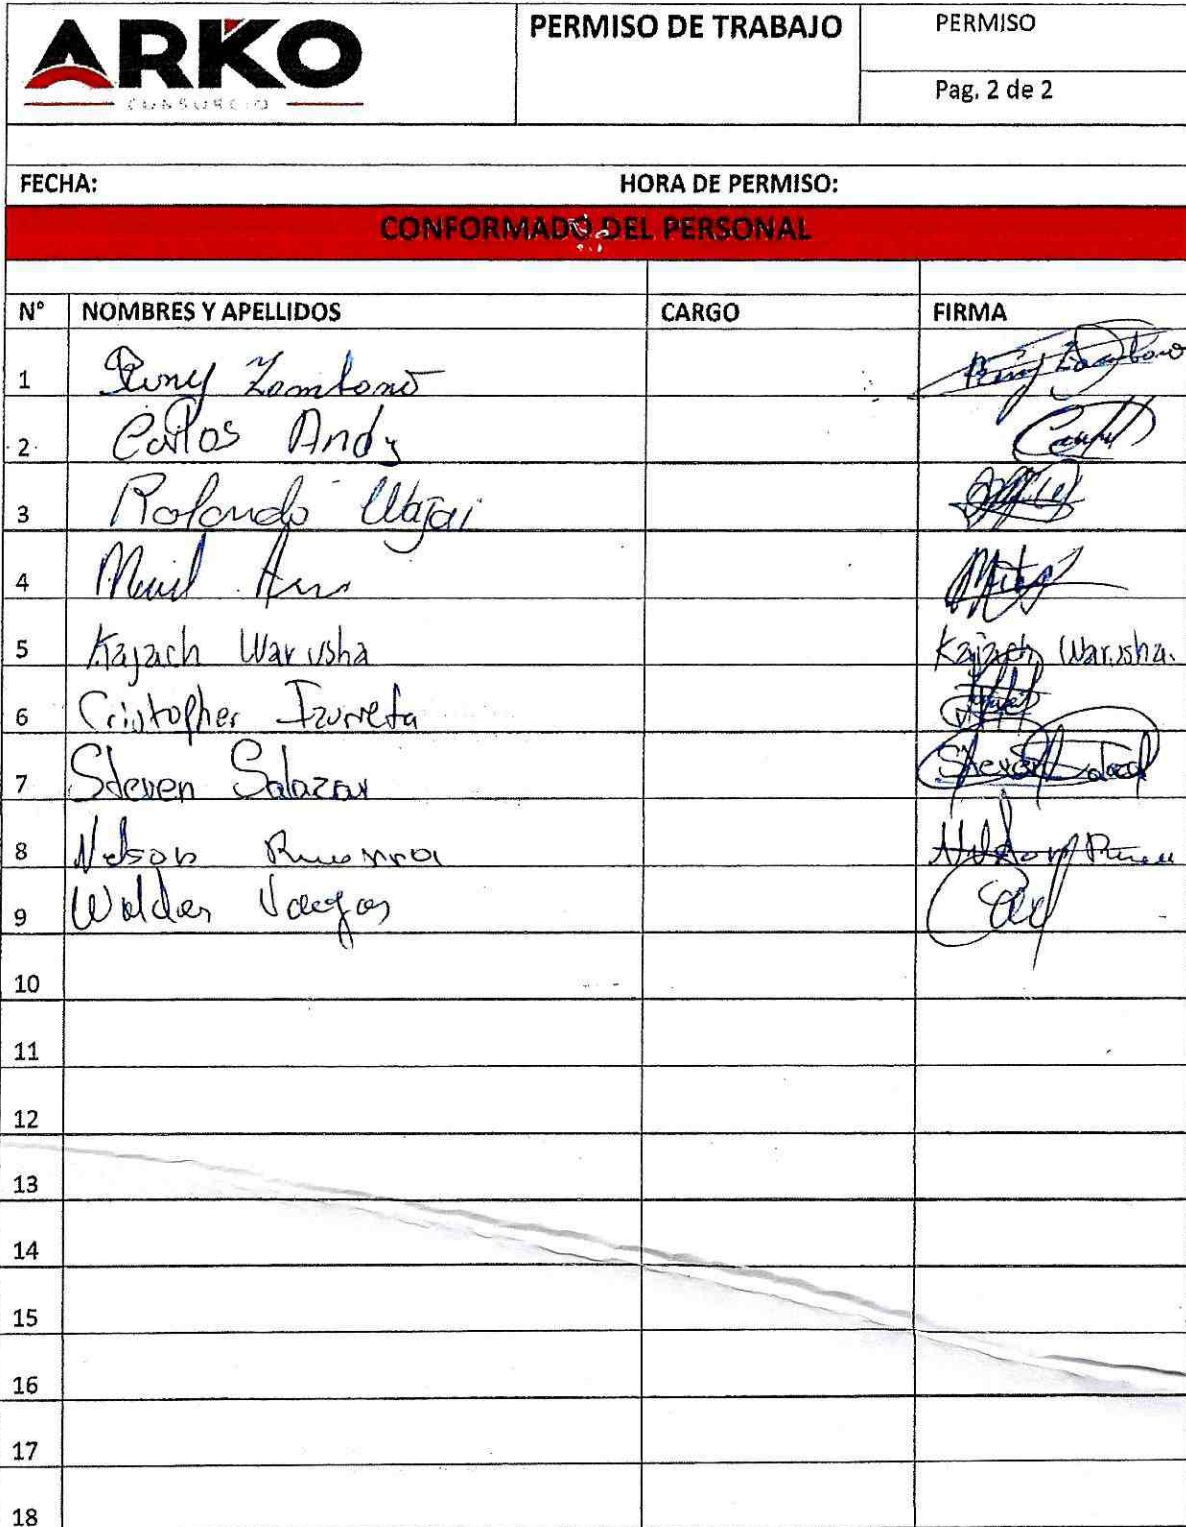 ARKO
CONSORCIO
PERMISO DE TRABAJO
PERMISO
Pag. 2 de 2
FECHA: HORA DE PERMISO:
CONFORMADO DEL PERSONAL
N° NOMBRES Y APELLIDOS CARGO FIRMA
1 Zambono
2 Carlos Andy
3 Rolando Wajai
4
5 Kajach Warusha Kajach Warusha.
6 Cristopher Izurreta
7 Steven Salazar Steven
8 Nelson
9 Vargas
10
11
12
13
14
15
16
17
18